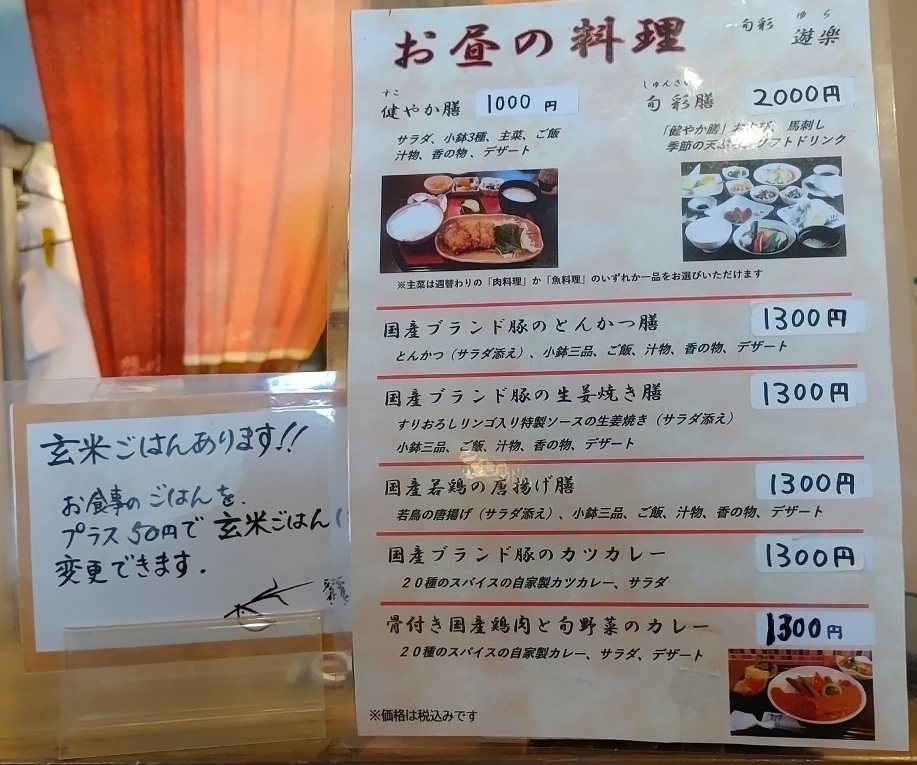 お昼の料理
旬彩 遊楽
ゆら
すこ
健やか膳 1000円
サラダ、小鉢3種、主菜、ご飯
汁物、香の物、デザート
しゅんさい
旬彩膳 2000円
「健やか膳」および、馬刺し
季節の天ぷら、ソフトドリンク
※主菜は週替わりの「肉料理」か「魚料理」のいずれか一品をお選びいただけます
国産ブランド豚のとんかつ膳 1300円
とんかつ（サラダ添え）、小鉢三品、ご飯、汁物、香の物、デザート
国産ブランド豚の生姜焼き膳 1300円
すりおろしリンゴ入り特製ソースの生姜焼き（サラダ添え）
小鉢三品、ご飯、汁物、香の物、デザート
国産若鶏の唐揚げ膳 1300円
若鳥の唐揚げ（サラダ添え）、小鉢三品、ご飯、汁物、香の物、デザート
国産ブランド豚のカツカレー 1300円
20種のスパイスの自家製カツカレー、サラダ
骨付き国産鶏肉と旬野菜のカレー 1300円
20種のスパイスの自家製カレー、サラダ、デザート
※価格は税込みです
玄米ごはんあります!!
お食事のごはんを、
プラス50円で玄米ごはん
変更できます.